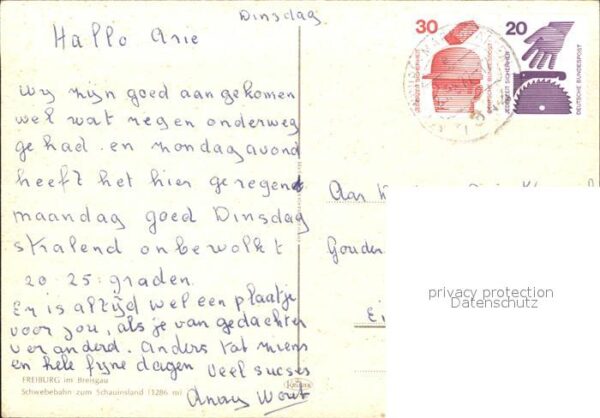 Dinsdag
Hallo Arie
Wij zijn goed aangekomen
wel wat regen onderweg
gehad en zondag avond
heeft het hier geregent
maandag goed Dinsdag
stralend onbewolkt
20-25 graden.
Er is altijd wel een plaatje
voor jou, als je van gedachten
veranderd. Anders tot ziens
en hele fijne dagen veel succes
Wout
FREIBURG im Breisgau
Schwebebahn zum Schauinsland (1286 m)
30
JEDERZEIT SICHERHEIT
DEUTSCHE BUNDESPOST
20
JEDERZEIT SICHERHEIT
DEUTSCHE BUNDESPOST
Aan
Gouder
Ei
privacy protection
Datenschutz